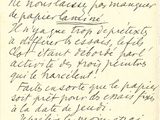 Ne nous laissez pas manquer
de papier laminé
Il n'y a que trop de prétextes
à différer les essais, le fil
étant débordé par l'
activité des trois peintres
qui le harcèlent!
Faites en sorte que le papier
soit prêt pour des essais fixés
à la date de jeudi.